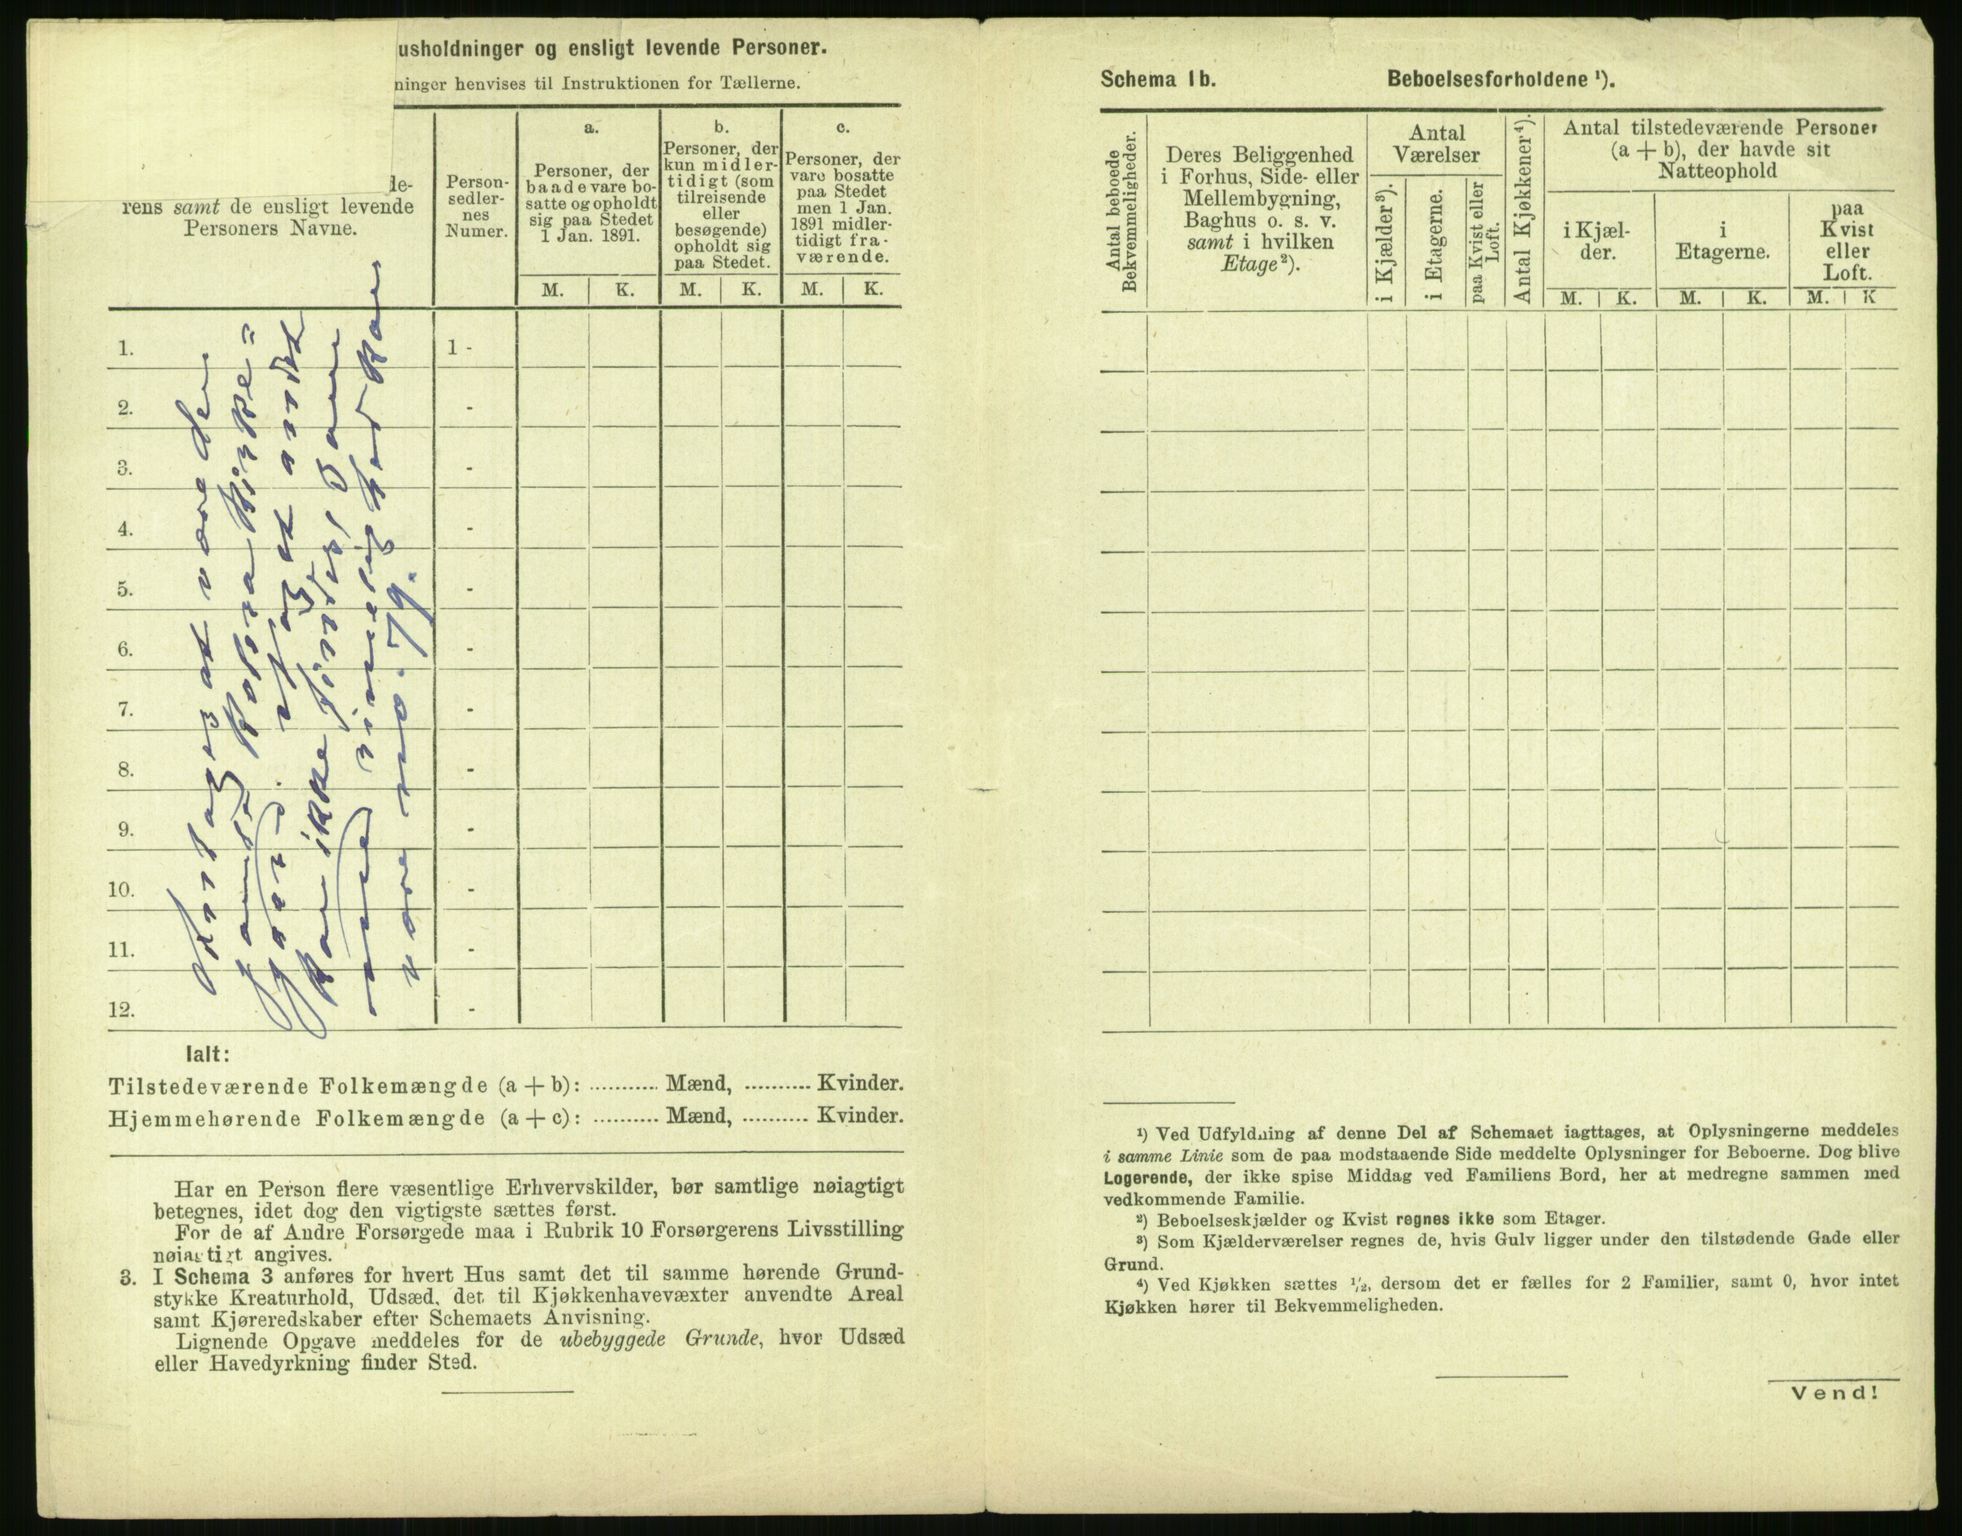 usholdninger og ensligt levende Personer.
ninger henvises til Instruktionen for Tællerne.
de-
rens samt de ensligt levende
Personers Navne.
Person-
sedler-
nes
Numer.
a.
Personer, der
baade vare bo-
satte og opholdt
sig paa Stedet
1 Jan. 1891.
b.
Personer, der
kun midler-
tidigt (som
tilreisende
eller
besøgende)
opholdt sig
paa Stedet.
c.
Personer, der
vare bosatte
paa Stedet
men 1 Jan.
1891 midler-
tidigt fra-
værende.
M. K. M. K. M. K.
1. 1 -
2. -
3. -
4. -
5. -
6. -
7. -
8. -
9. -
10. -
11. -
12. -
Antages at være den
gamle Kolsna Kirke=
gård.
kan ikke findes,
være no. 79.
Ialt:
Tilstedeværende Folkemængde (a + b): ........... Mænd, .......... Kvinder.
Hjemmehørende Folkemængde (a + c): .......... Mænd, .......... Kvinder.
Har en Person flere væsentlige Erhvervskilder, bør samtlige nøiagtigt
betegnes, idet dog den vigtigste sættes først.
For de af Andre Forsørgede maa i Rubrik 10 Forsørgerens Livsstilling
nøiagtigt angives.
3. I Schema 3 anføres for hvert Hus samt det til samme hørende Grund-
stykke Kreaturhold, Udsæd, det til Kjøkkenhavevæxter anvendte Areal
samt Kjøreredskaber efter Schemaets Anvisning.
Lignende Opgave meddeles for de ubebyggede Grunde, hvor Udsæd
eller Havedyrkning finder Sted.
Schema 1b. Beboelsesforholdene ¹).
Antal beboede
Bekvemmeligheder.
Deres Beliggenhed
i Forhus, Side- eller
Mellembygning,
Baghus o. s. v.
samt i hvilken
Etage²).
Antal
Værelser
i Kjælder³).
i Etagerne.
paa Kvist eller
Loft.
Antal Kjøkkener⁴).
Antal tilstedeværende Personer
(a + b), der havde sit
Natteophold
i Kjæl-
der.
i
Etagerne.
paa
Kvist
eller
Loft.
M. K. M. K. M. K
¹) Ved Udfyldning af denne Del af Schemaet iagttages, at Oplysningerne meddeles
i samme Linie som de paa modstaaende Side meddelte Oplysninger for Beboerne. Dog blive
Logerende, der ikke spise Middag ved Familiens Bord, her at medregne sammen med
vedkommende Familie.
²) Beboelseskjælder og Kvist regnes ikke som Etager.
³) Som Kjælderværelser regnes de, hvis Gulv ligger under den tilstødende Gade eller
Grund.
⁴) Ved Kjøkken sættes ½, dersom det er fælles for 2 Familier, samt 0, hvor intet
Kjøkken hører til Bekvemmeligheden.
Vend!